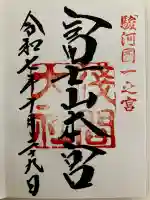 駿河國一之宮
富士山本宮
淺間大社
令和七年十月二十九日